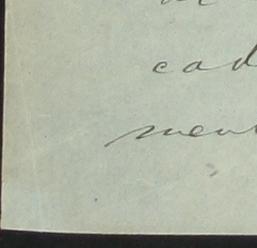 cad
men